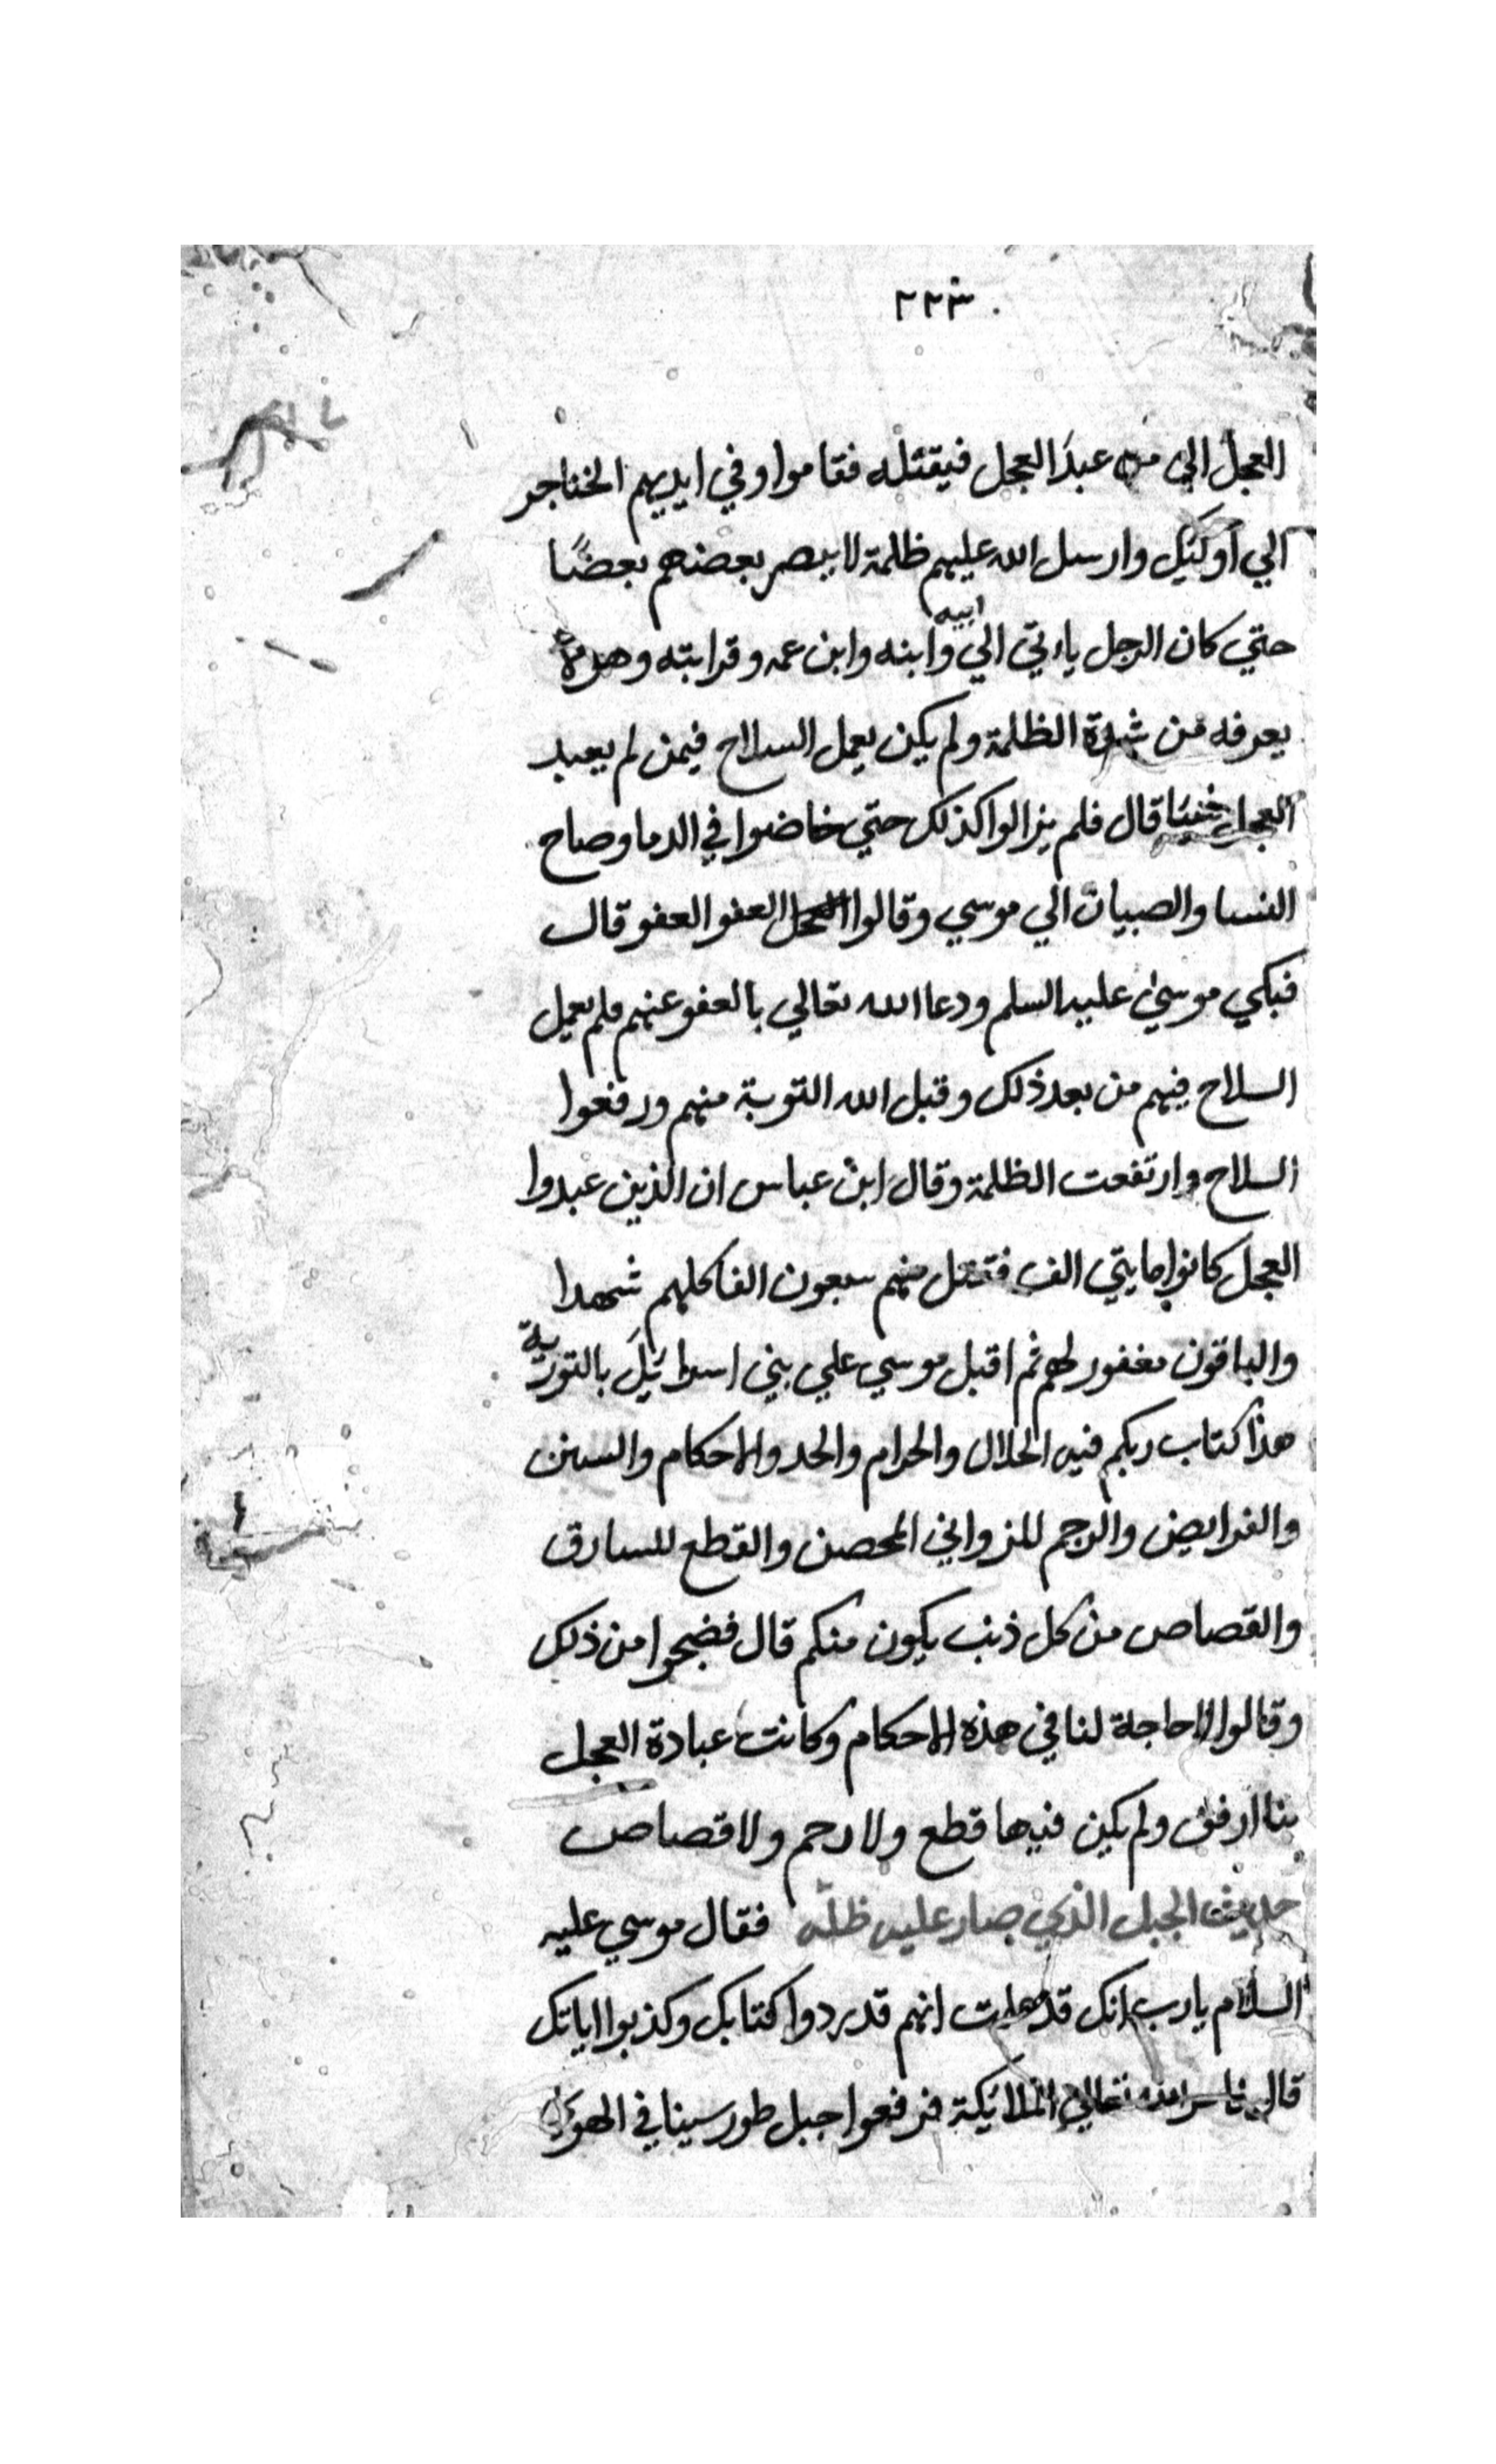 ٢٢٣
العجل الي من عبد العجل فيقتله فقاموا وفي ايديهم الخناجر
الي اوليك وارسل الله عليهم ظلمة لا يبصر بعضهم بعضًا
حتي كان الرجل ياءتي الي ابيه وابنه وابن عمه وقرابته وهو لا
يعرفه من شدة الظلمة ولم يكن يعمل السلاح فيمن لم يعبد
العجل شيئا قال فلم يزالوا كذلك حتي خاضوا في الدما وصاح
النسا والصبيان الي موسي وقالوا العفو العفو قال
فبكي موسي عليه السلم ودعا الله تعالي بالعفو عنهم فلم يعمل
السلاح فيهم من بعد ذلك وقبل الله التوبة منهم ورفعوا
السلاح وارتفعت الظلمة وقال ابن عباس ان الذين عبدوا
العجل كانوا مايتي الف فقتل منهم سبعون الفا كلهم شهدا
والباقون مغفور لهم ثم اقبل موسي علي بني اسرائيل بالتورية
هذا كتاب ربكم فيه الحلال والحرام والحد والاحكام والسنن
والفرايض والرجم للزواني المحصن والقطع للسارق
والقصاص من كل ذنب يكون منكم قال فضجوا من ذلك
وقالوا لا حاجة لنا في هذه الاحكام وكانت عبادة العجل
بنا ارفق ولم يكن فيها قطع ولا رجم ولا قصاص
حديث الجبل الذي صار عليه ظله فقال موسي عليه
السلام يارب انك قد علمت انهم قد ردوا كتابك وكذبوا اياتك
قال فامر الله تعالي الملائكة فرفعوا جبل طور سينا في الهوي